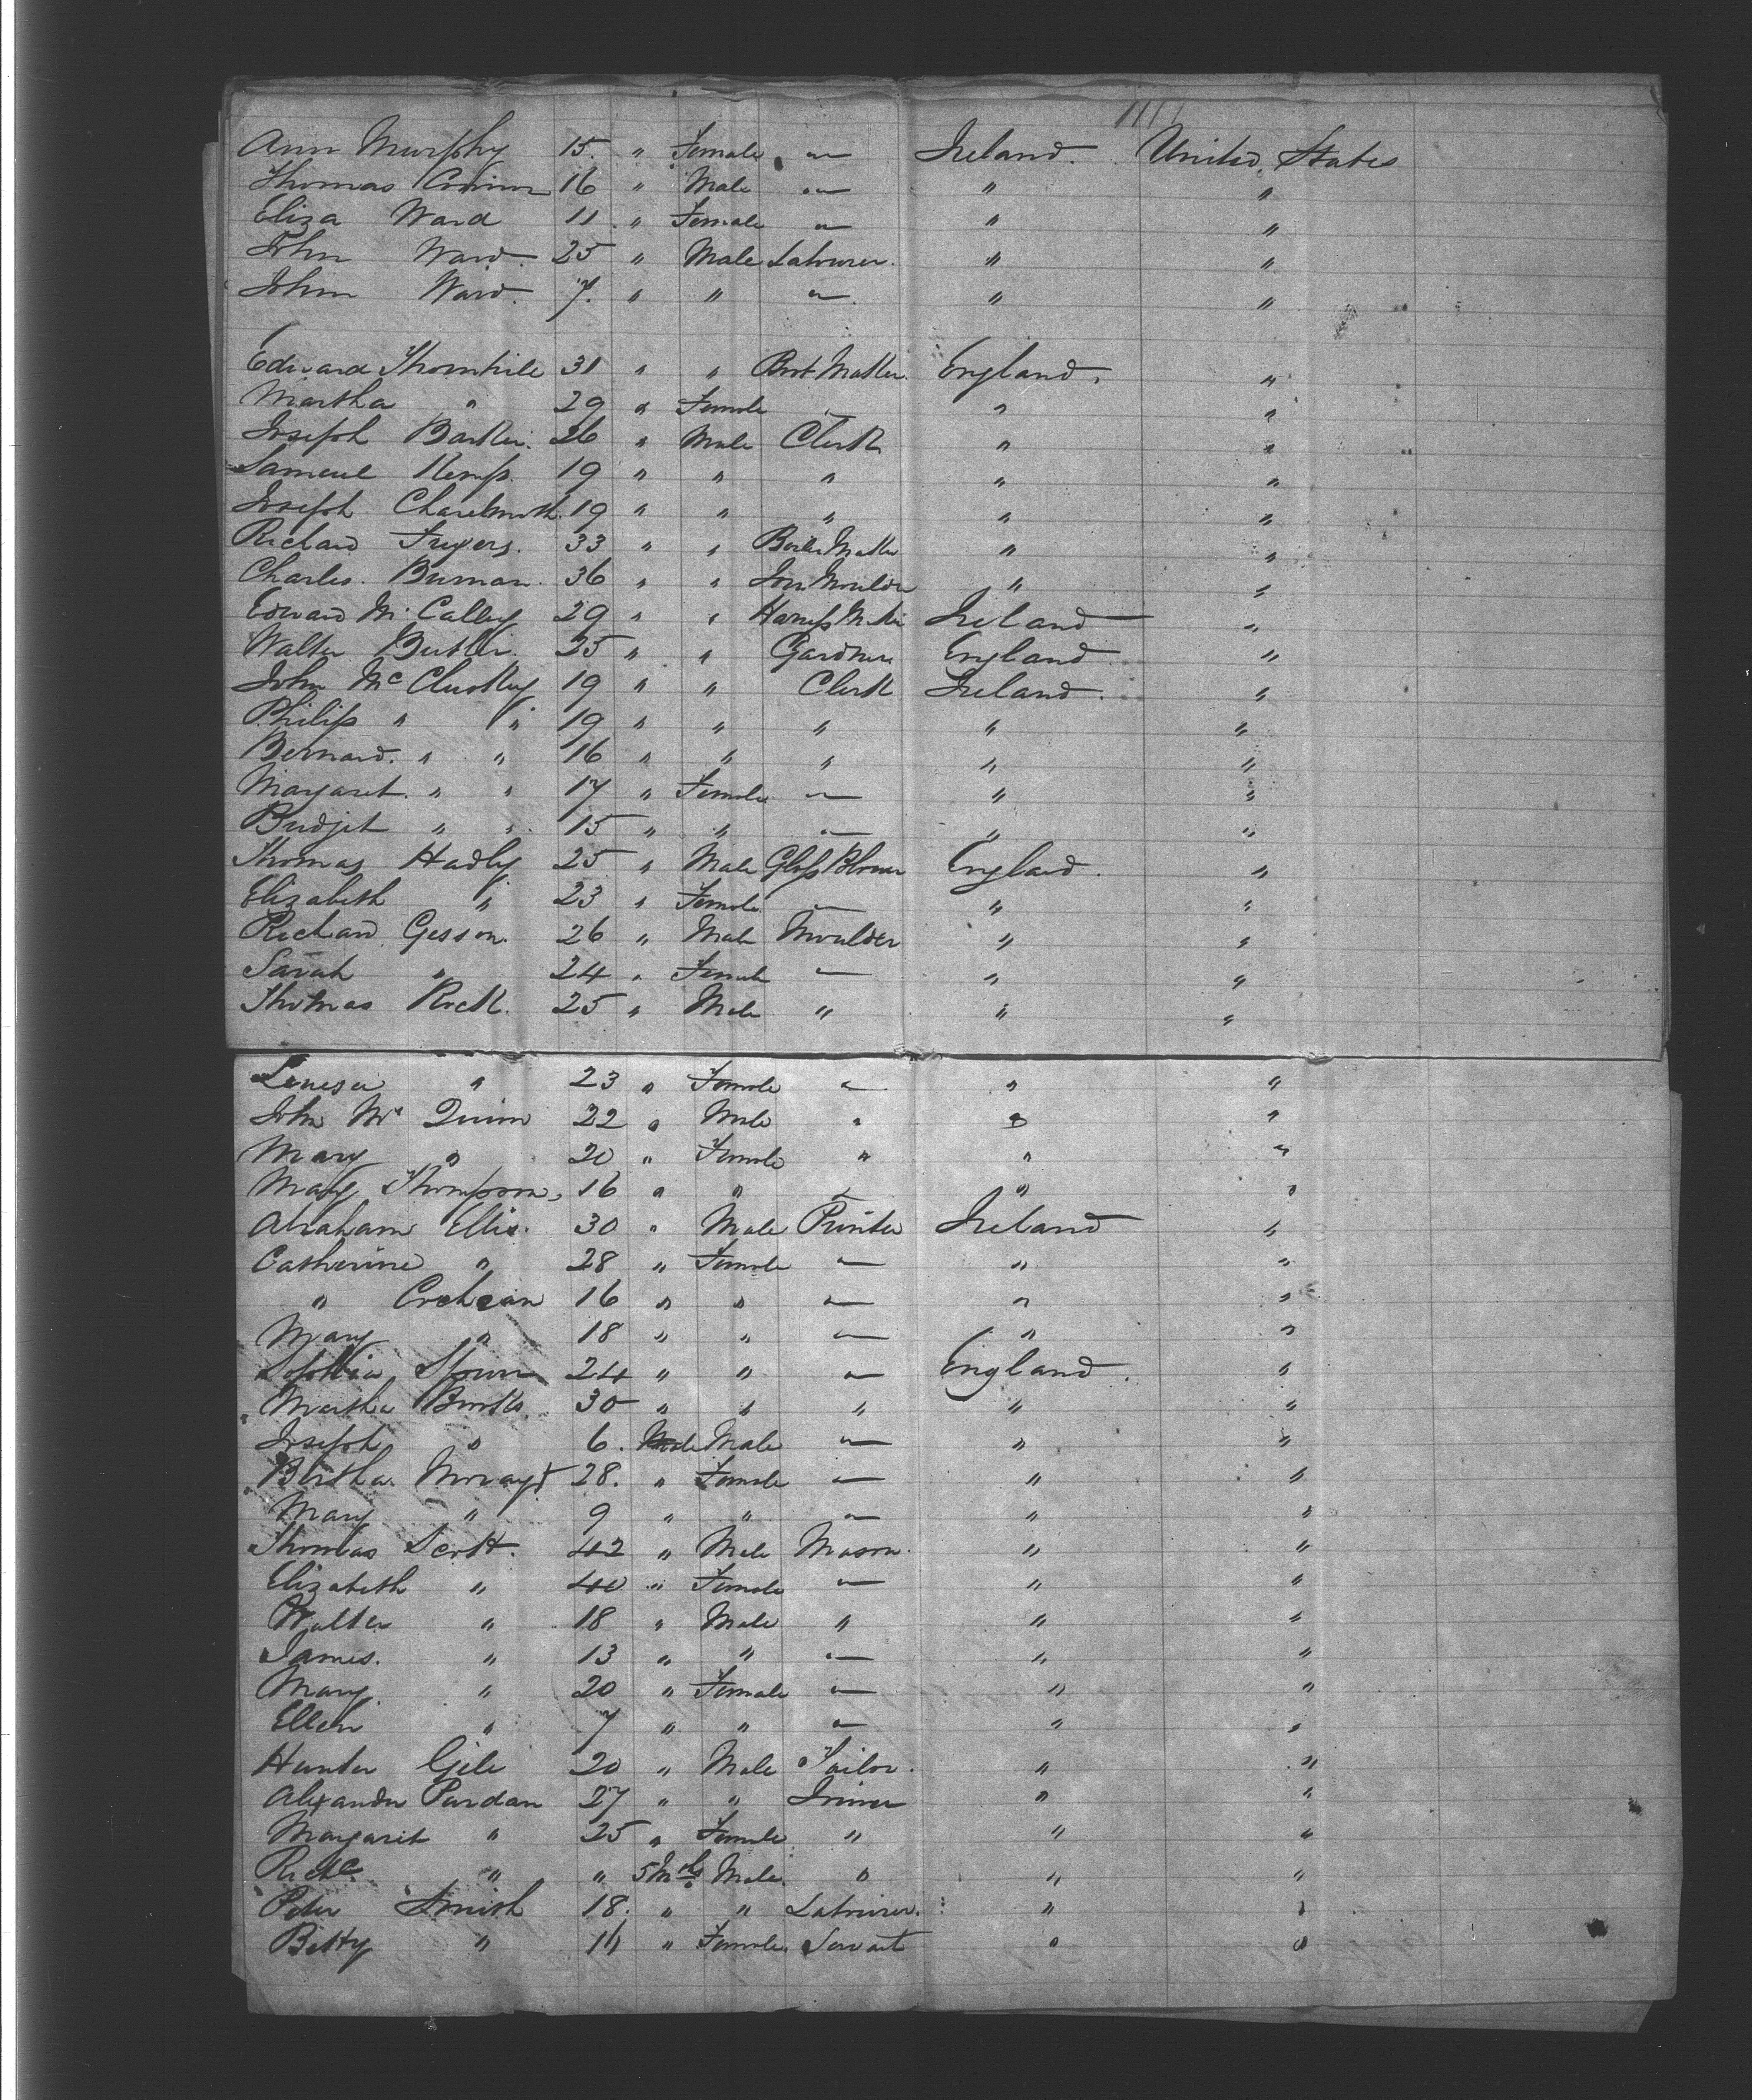 Ann Murphy 15. " Female — Ireland. United States
Thomas 16 " Male — " "
Eliza Ward 11 " Female — " "
John Ward. 25 " Male Labourer. " "
John Ward. 7. " " — " "
Edward Thornhill 31 " " Boot Maker. England. "
Martha " 29 " Female " "
Joseph Barker. 26 " Male Clerk " "
Samuel Kemp. 19 " " " " "
Joseph 19 " " " " "
Richard 33 " " Boiler Maker " "
Charles. 36 " " Iron Moulder " "
Edward Mc Calley 29 " " Harness Maker Ireland "
Walter Butler. 25 " " Gardner England "
John Mc Cluskey 19 " " Clerk Ireland. "
Philip " " 19 " " " " "
Bernard. " " 16 " " " " "
Margaret. " " 17 " Female — " "
Bridjet " " 15 " " — " "
Thomas Hadly 25 " Male Glass Blower England. "
Elizabeth " 23 " Female — " "
Richard Gesson. 26 " Male Moulder " "
Sarah " 24 " Female — " "
Thomas Rock. 25 " Male " " "
" 23 " Female — " "
John Mc Quinn 22 " Male " " "
Mary " 20 " Female " " "
Mary Thompson, 16 " " " " "
Abraham Ellis. 30 " Male Printer Ireland "
Catherine " 28 " Female — " "
" 16 " " — " "
Mary " 18 " " — " "
24 " " — England. "
Martha 30 " " " " "
Joseph " 6. Male Male — " "
28. " Female — " "
Mary " 9 " " — " "
Thomas Scott. 42 " Male Mason. " "
Elizabeth " 40 " Female — " "
Walter " 18 " Male " " "
James. " 13 " " — " "
Mary. " 20 " Female — " "
Ellen " 7 " " — " "
Hunter Gile 20 " Male Tailor. " "
Alexander Purdan 27 " " " "
Margaret " 25 " Female " " "
Richd " " 5 Mths Male " " "
Peter Smith 18. " " Labourer. " "
Betty " " Female Servant " "